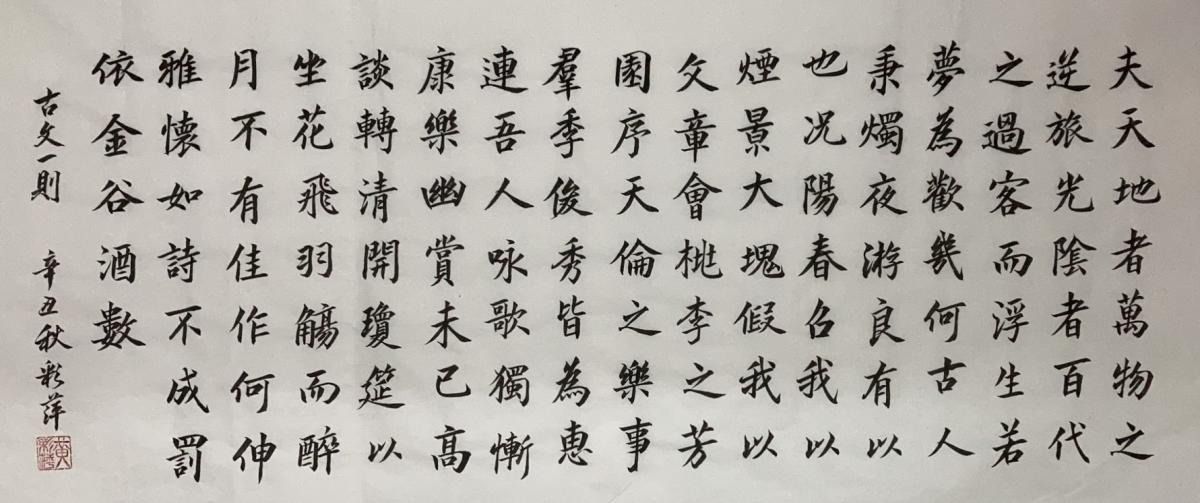 夫天地者萬物之
逆旅光陰者百代
之過客而浮生若
夢為歡幾何古人
秉燭夜游良有以
也况陽春召我以
煙景大塊假我以
文章會桃李之芳
園序天倫之樂事
羣季俊秀皆為惠
連吾人咏歌獨慚
康樂幽賞未已高
談轉清開瓊筵以
坐花飛羽觴而醉
月不有佳作何伸
雅懷如詩不成罰
依金谷酒數
古文一則 辛丑秋彩萍
黄彩萍